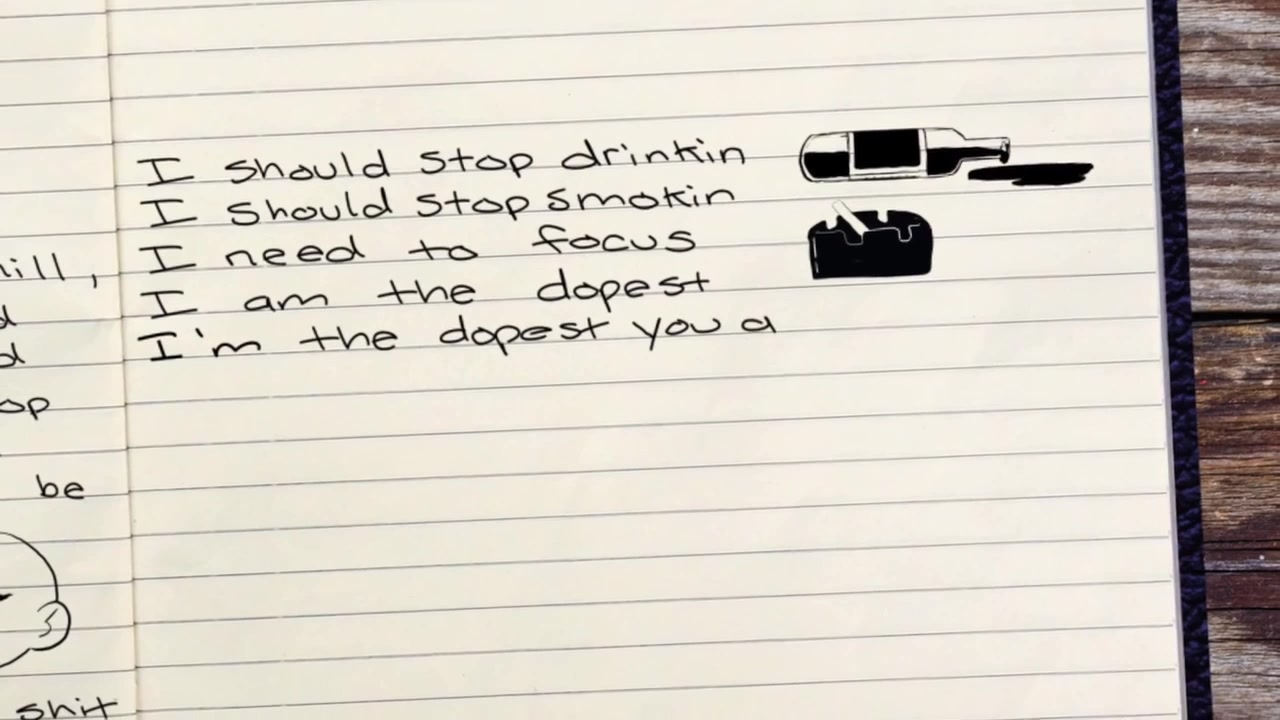 hill,
d
d
op
be
shit
I should stop drinkin
I should stop smokin
I need to focus
I am the dopest
I'm the dopest you a